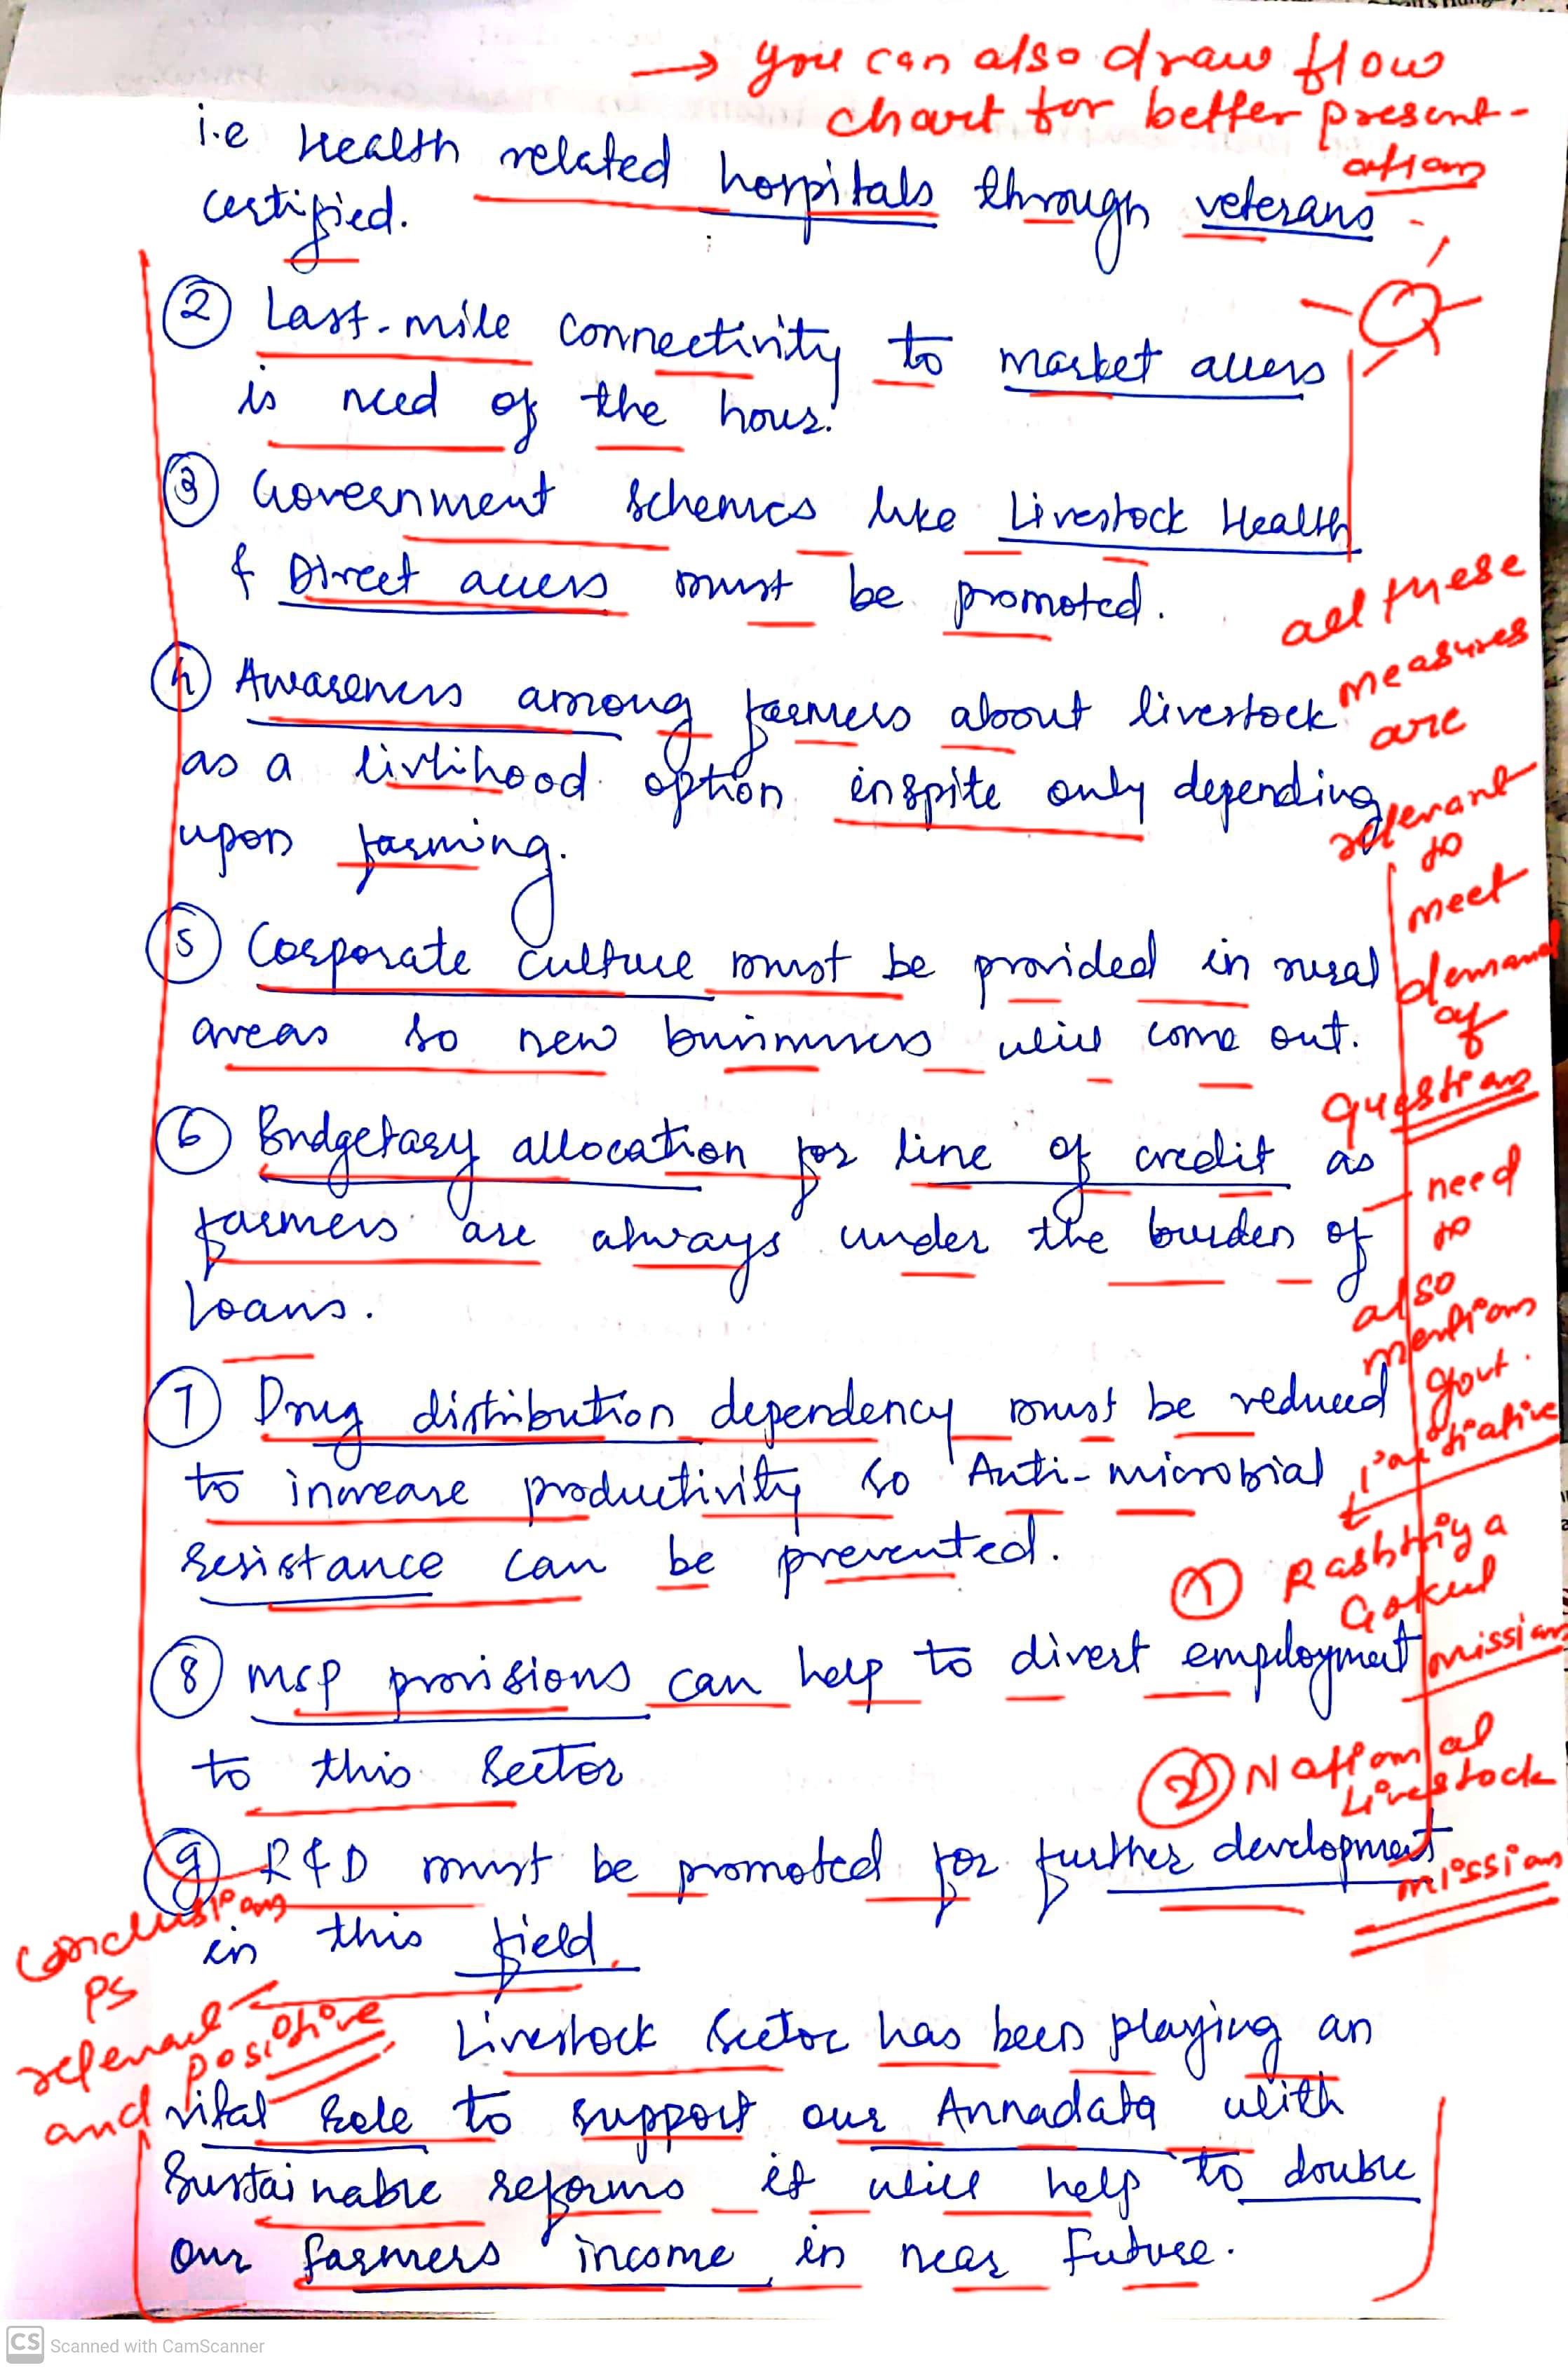 → you can also draw flow
chart for better present-
ation
i.e Health related hospitals through veterans
certified.
② Last-mile connectivity to market access
is need of the hour.
③ Government schemes like Livestock Health
& Direct access must be promoted.
④ Awareness among farmers about livestock
as a livlihood option inspite only depending
upon farming.
⑤ Corporate culture must be provided in rural
areas so new businesses will come out.
⑥ Budgetary allocation for line of credit as
farmers are always under the burden of
loans.
⑦ Drug distribution dependency must be reduced
to increase productivity so Anti-microbial
resistance can be prevented.
⑧ MSP provisions can help to divert employment
to this sector
⑨ R&D must be promoted for further development
in this field.
Livestock sector has been playing an
vital role to support our Annadata with
Sustainable reforms it will help to double
our farmers income in near future.
all these
measures
are
relevant
to
meet
demand
of
question
- need
to
also
mention
govt.
initiative
① Rashtriya
Gokul
mission
② National
Livestock
mission
conclusion
is
relevant
and positive
CS Scanned with CamScanner